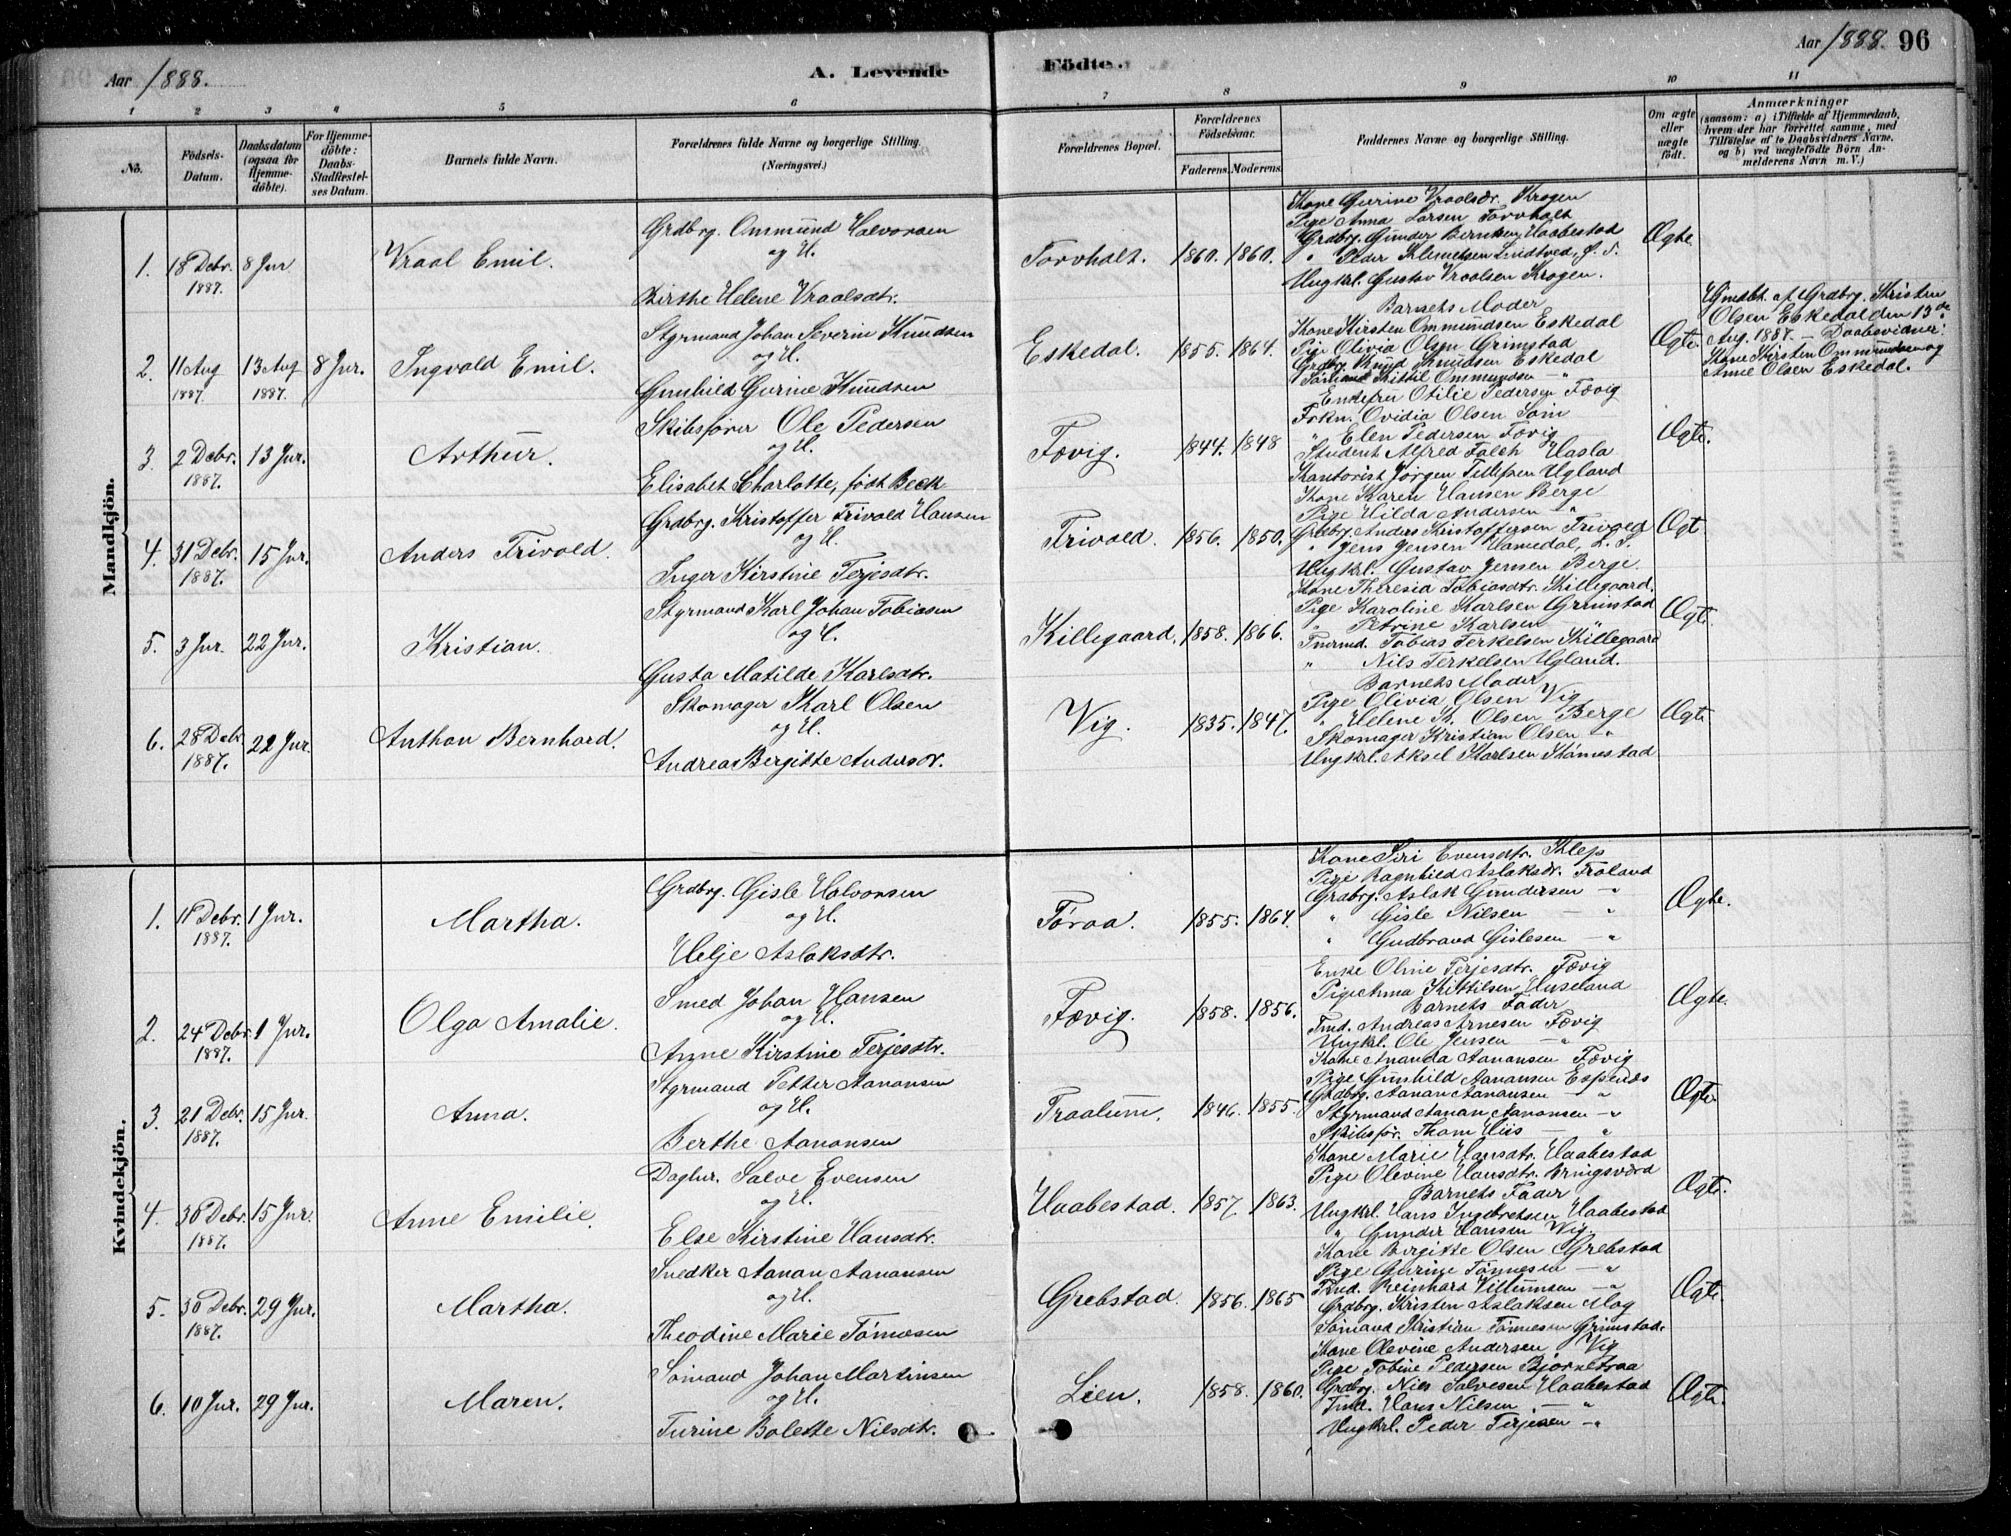 Aar 1888.
A. Levende
Födte.
Aar 1888. 96
1 2 3 4 5 6 7 8 9 10 11
No.
Födsels-Datum.
Daabsdatum (ogsaa for Hjemmedöbte).
For Hjemmedöbte: Daabs-Stadfæstelses Datum.
Barnets fulde Navn.
Forældrenes fulde Navne og borgerlige Stilling. (Næringsvei.)
Forældrenes Bopæl.
Forældrenes Födselsaar.
Faderens. Moderens.
Faddernes Navne og borgerlige Stilling.
Om ægte eller uægte födt.
Anmærkninger
(saasom: a) i Tilfælde af Hjemmedaab, hvem der har forrettet samme, med Tilföielse af to Daabsvidners Navne, og b) ved uægtefödte Börn Anmelderens Navn m. V.)
Mandkjön.
1. 18 Debr. 1887. 8 Jnr
Vraal Emil.
Grdbrg. Ommund Halvorsen
og H.
Birthe Helene Vraalsdtr.
Torvholt. 1860. 1860.
Kone Gurine Vraalsdr. Krogen
Pige Anna Larsen Torvholt
Grdbrg. Gunder Berntsen Haabestad
" Peder Klemetsen Lindtved,
Ungkrl. Gustav Vraalsen Krogen.
Ægte
2. 11 Aug 1887. 13 Aug 1887. 8 Jnr.
Ingvald Emil.
Styrmand Johan Severin Knudsen
og H.
Gunhild Gurine Knudsen
Eskedal. 1855. 1864.
Barnets Moder
Kone Kirsten Ommundsen Eskedal
Pige Olivia Olsen Grimstad
Grdbrg. Knud Knudsen Eskedal
Sømand Kittil Ommundsen — "
Ægte.
Hjmdbt. af Grdbrg. Kristen
Olsen Eskedal den 13de
Aug. 1887. — Daabsvidner:
Kone Kirsten Ommundsen og
Anne Olsen Eskedal.
3. 2 Debr. 1887. 13 Jnr.
Arthur.
Skibsfører Ole Pedersen
og H.
Elisabet Charlotte, født Beck
Fævig. 1844. 1848
Enkefru Otilie Pedersen Fævig
Frkn. Ovidia Olsen Som
" Elen Pedersen Fævig
Student Alfred Falch Hasla
Kantorist Jørgen Tellefsen Ugland
Ægte.
4. 31 Debr. 1887. 15 Jnr.
Anders Trivold.
Grdbrg. Kristoffer Trivold Hansen
og H.
Inger Kirstine Terjesdtr.
Trivold. 1856. 1850.
Kone Karen Hansen Berge
Pige Hilda Andersen — "
Grdbrg. Anders Kristoffersen Trivold
" Jens Jensen Hamedal, L. S.
Ungkrl. Gustav Jensen Berge.
Ægt
5. 3 Jnr. 22 Jnr.
Kristian.
Styrmand Karl Johan Tobiasen
og H.
Gusta Matilde Karlsdtr.
Killegaard. 1858. 1866.
Kone Theresia Tobiasdtr. Killegaard.
Pige Karoline Karlsen Grimstad
" Petrine Karlsen — "
Tmrmd. Tobias Terkelsen Killegaard
" Nils Terkelsen Ugland.
Ægt.
6. 28 Debr. 1887. 22 Jnr.
Anthon Bernhard.
Skomager Karl Olsen
og H.
Andrea Bergitte Andersdr.
Vig. 1835. 1847.
Barnets Moder
Pige Olivia Olsen Vig
" Helene K. Olsen Berge
Skomager Kristian Olsen "
Ungkrl. Aksel Karlsen Kånnestad
Ægte
Kvindekjön.
1. 11 Debr. 1887. 1 Jnr.
Martha.
Grdbrg. Gisle Halvorsen
og H.
Helje Aslaksdtr.
Føraa. 1855. 1864.
Kone Siri Evensdtr. Klep
Pige Ragnhild Aslaksdr. Froland
Grdbrg. Aslak Gundersen — "
" Gisle Nilsen — "
" Gudbrand Gislesen — "
Ægte.
2. 24 Debr. 1887. 1 Jnr.
Olga Amalie.
Smed Johan Hansen
og H.
Anne Kirstine Terjesdtr.
Fævig. 1858. 1856.
Enke Oline Terjesdtr. Fævig
Pige Anna Kittilsen Huseland
Barnets Fader
Tmd. Andreas Arnesen Fævig
Ungkl. Ole Jensen — "
Ægte.
3. 21 Debr. 1887. 15 Jnr.
Anna.
Styrmand Petter Aanansen
og H.
Berthe Aanansen
Traalum. 1846. 1855.
Kone Ananda Aanansen Fævig
Pige Gunhild Aanansen Espenæs
Grdbrg. Aanan Aanansen — "
Styrmand Aanan Aanonsen — "
Skibsfør. Thom Hiis — "
Ægte
4. 30 Debr. 1887. 15 Jnr.
Anne Emilie.
Dagltr. Salve Evensen
og H.
Else Kirstine Hansdtr.
Haabestad. 1857. 1863.
Kone Marie Hansdtr. Haabestad
Pige Olevine Hansdtr. Bringsværd
Barnets Fader
Ungkrl. Hans Ingebretsen Haabestad
" Gunder Hansen Vig.
Ægte.
5. 30 Debr. 1887. 29 Jnr.
Martha.
Snedker Aanan Aanansen
og H.
Theodine Marie Tønnesen
Grebstad. 1856. 1865
Kone Birgitte Olsen Grebstad
Pige Gurine Tønnesen — "
Tmd. Reinhard Villumsen — "
Grdbrg. Kristen Aslaksen Mog
Sømand Kristian Tønnesen Grimstad.
Ægte
6. 10 Jnr. 29 Jnr.
Maren.
Sømand Johan Martinsen
og H.
Turine Bolette Nilsdtr.
Lien. 1858. 1860.
Kone Olevine Andersen Vig
Pige Tobine Pedersen Bjørnetraa
Grdbrg. Niels Salvesen Haabestad
Tmd. Hans Nilsen — "
Ungkrl. Peder Terjesen — "
Ægte.